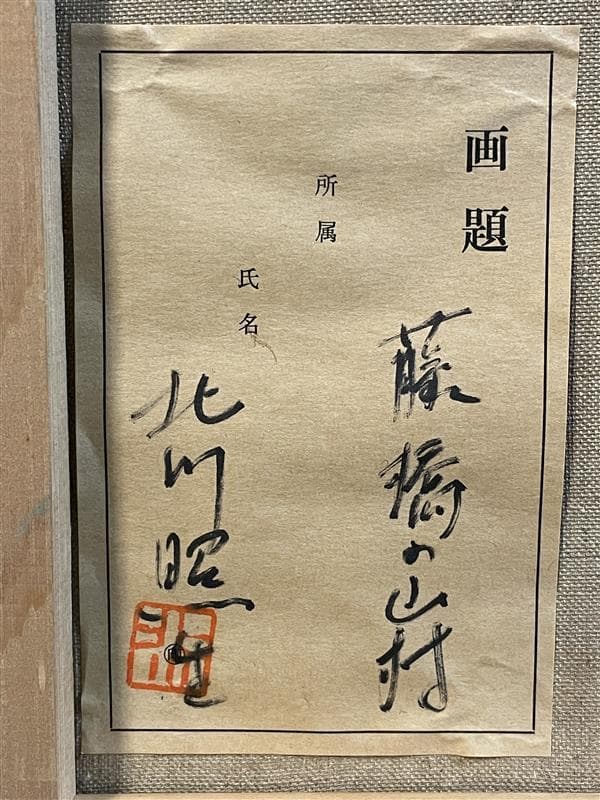 画題
藤橋の山村
所属
氏名
北川照生